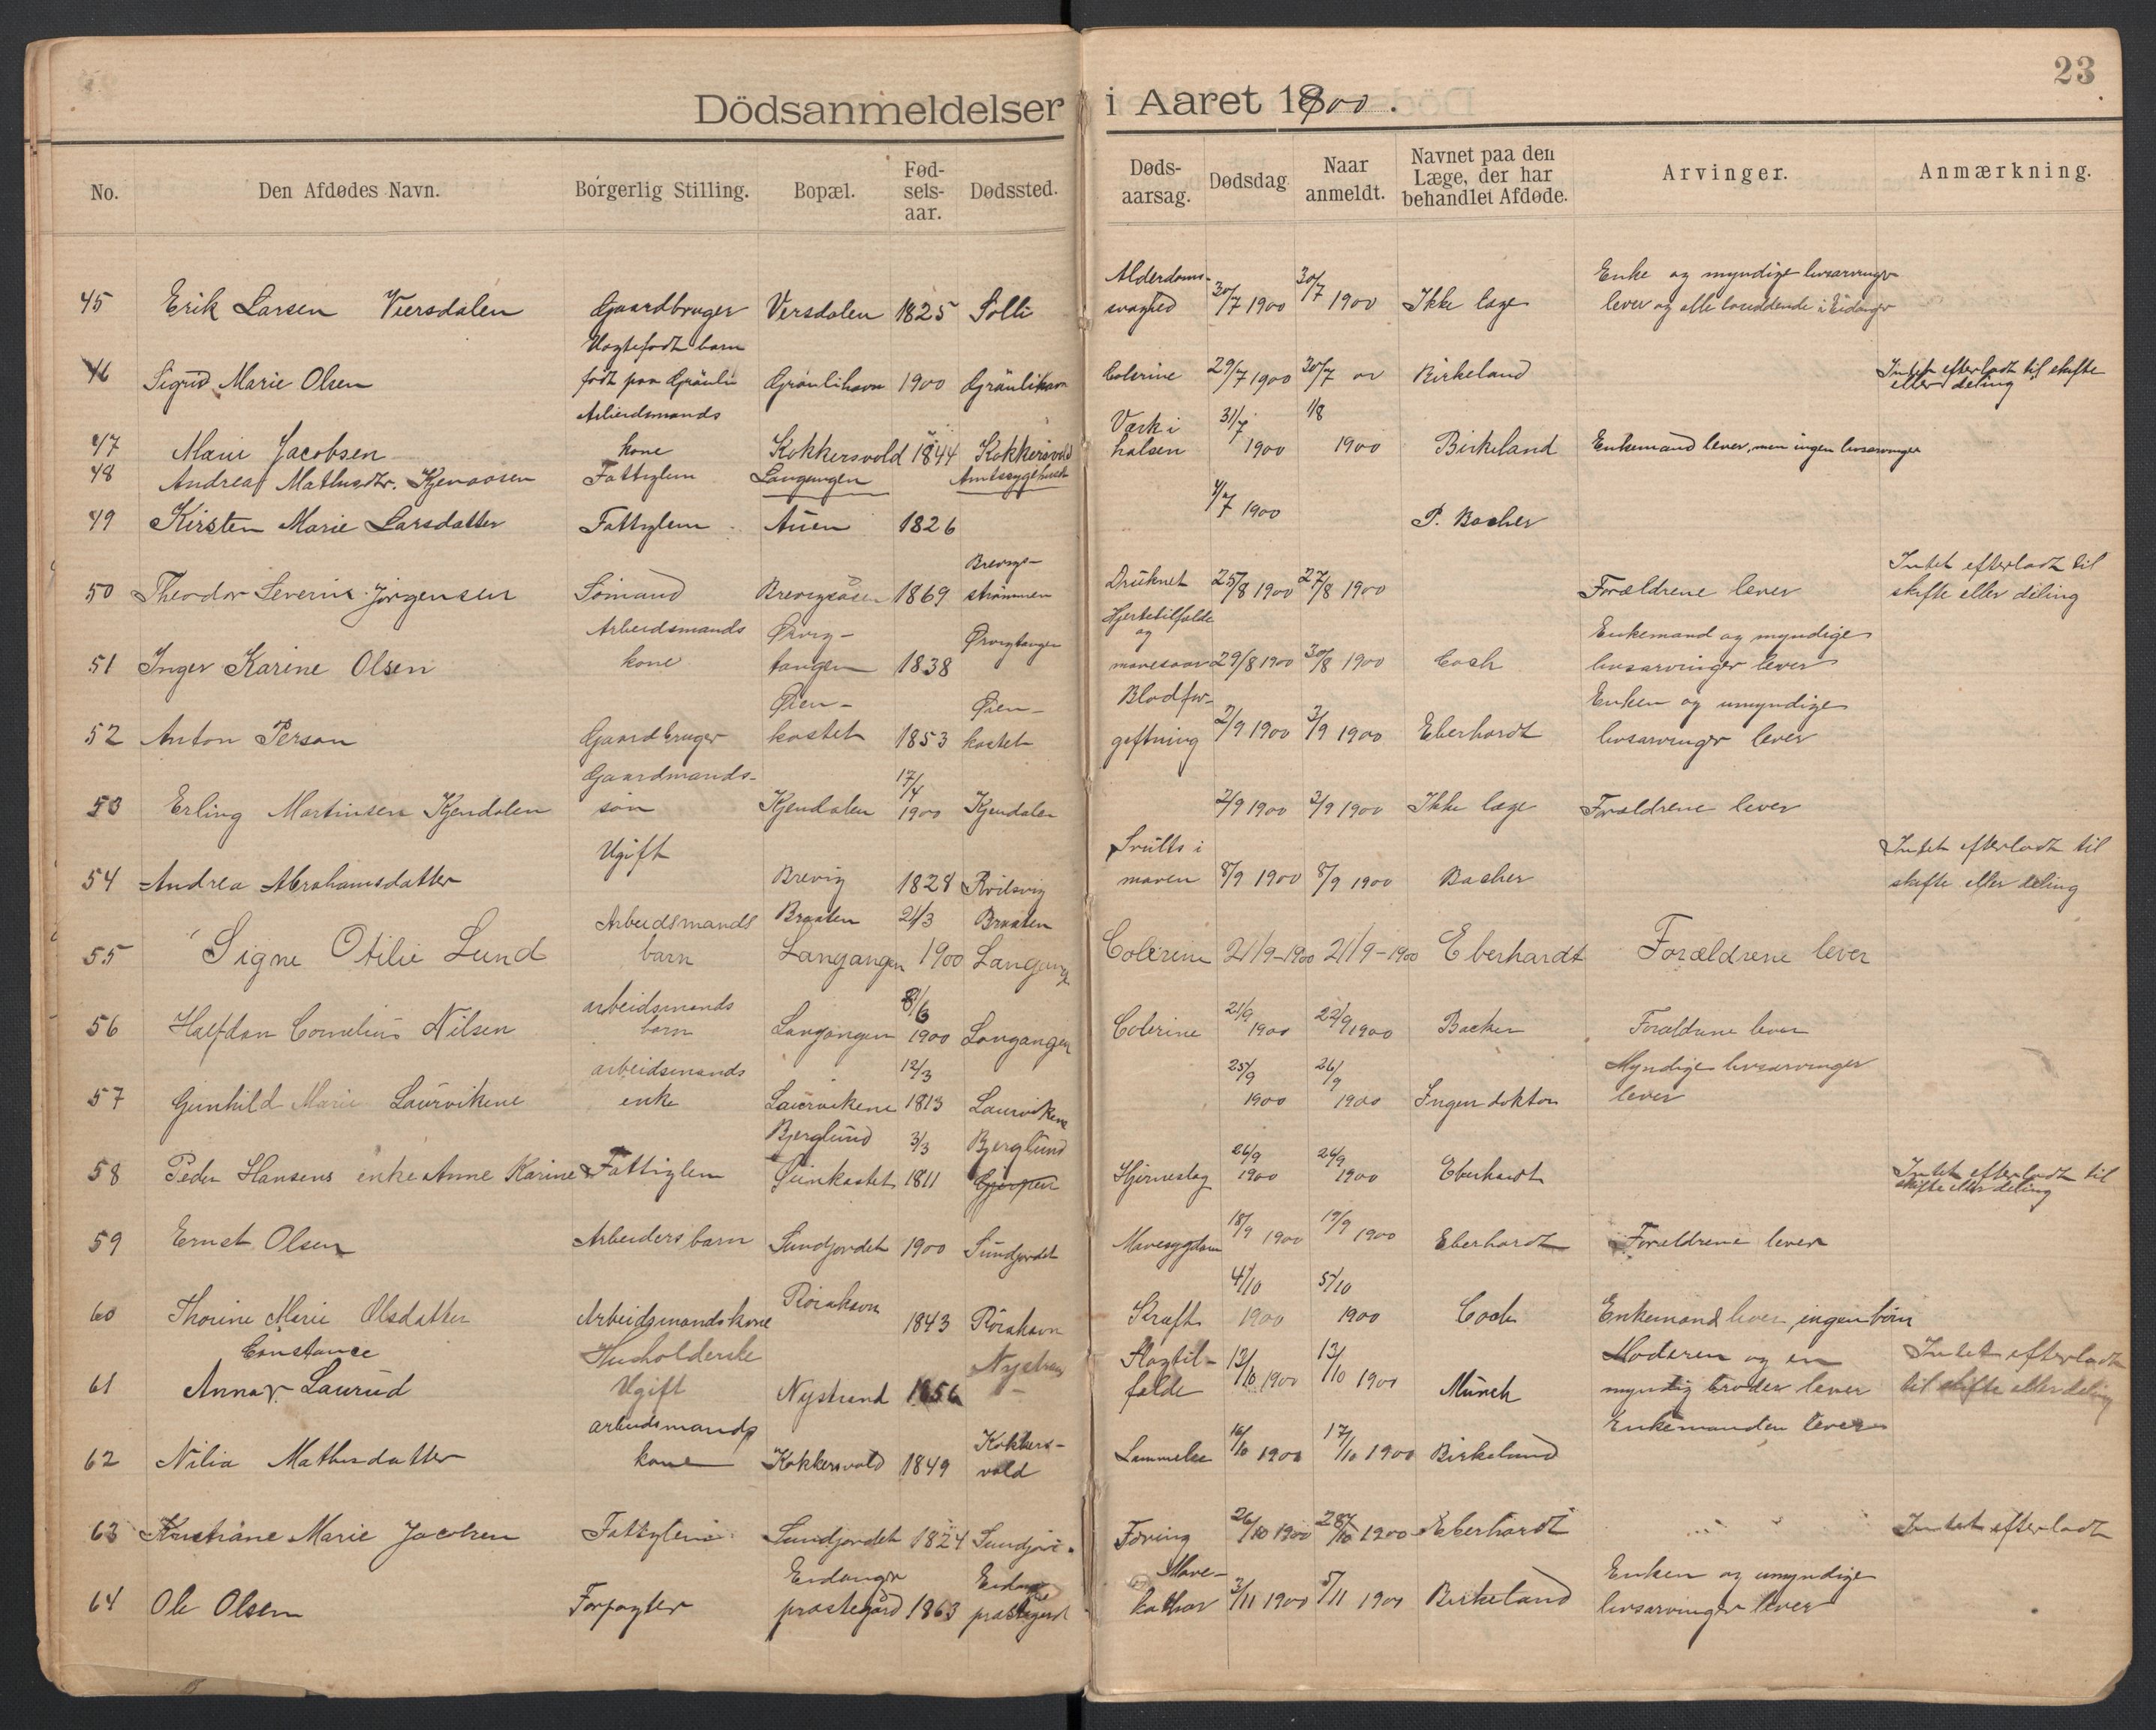 23
Dödsanmeldelser i Aaret 1900.
No. Den Afdødes Navn. Borgerlig Stilling. Bopæl. Fød-sels-aar. Dødssted. Døds-aarsag. Dødsdag Naar anmeldt. Navnet paa den Læge, der har behandlet Afdøde. Arvinger. Anmærkning.
45 Erik Larsen Versdalen Gaardbruger Versdalen 1825 Solli Alderdoms-svaghed 30/7 1900 30/7 1900 Ikke læge Enke og myndige livsarvinger lever og alle i Eidanger
46 Sigrid Marie Olsen Uægtefødt barn født paa Gräuli Gräulihavn 1900 Gräulihavn Colerine 29/7 1900 30/7 00 Birkeland Intet efterladt til skifte eller deling
47 Marie Jacobsen Arbeidsmands kone Kokkersvold 1844 Kokkersvold Værk i halsen 31/7 1900 1/8 1900 Birkeland Enkemand lever, men ingen livsarvinger
48 Andrea Mathisdtr. Kjenaasen Fattiglem Langangen Amtssygehuset
49 Kirsten Marie Larsdatter Fattiglem Auen 1826 4/7 1900 P. Backer
50 Theodor Severin Jörgensen Sömand Brevigsåsen 1869 Brevigs-strömmen Druknet 25/8 1900 27/8 1900 Forældrene lever Intet efterladt til skifte eller deling
51 Inger Karine Olsen Arbeidsmands kone Ørvig-tangen 1838 Ørvigtangen Hjertetilfælde og mavesaar 29/8 1900 30/8 1900 Coch Enkemand og myndige livsarvinger lever
52 Anton Person Gaardbruger Øien-kastet 1853 Øien-kastet Blodfor-giftning 2/9 1900 3/9 1900 Eberhardt Enken og umyndige livsarvinger lever
53 Erling Martinsen Kjendalen Gaardmands-sön Kjendalen 17/4 1900 Kjendalen 2/9 1900 3/9 1900 Ikke læge Forældrene lever
54 Andrea Abrahamsdatter Ugift Brevig 1828 Svults i maven 8/9 1900 8/9 1900 Backer Intet efterladt til skifte eller deling
55 Signe Otilie Lund Arbeidsmands barn Braaten Langangen 21/3 1900 Braaten Langangen Colerine 21/9-1900 21/9-1900 Eberhardt Forældrene lever
56 Halfdan Cornelius Nilsen arbeidsmands barn Langangen 8/6 1900 Langangen Colerine 21/9 1900 22/9 1900 Backer Forældrene lever
57 Gunhild Marie Laurvikene arbeidsmands enke Laurvikene 12/3 1813 Laurvikene 25/9 1900 26/9 1900 Ingen doktor Myndige livsarvinger lever
58 Peder Hansens enke Anne Karine Fattiglem Bjerglund 3/3 1811 Bjerglund Gjerpen Hjerneslag 26/9 1900 26/9 1900 Eberhardt Intet efterladt til skifte eller deling
59 Ernst Olsen Arbeiders barn Sundjordet 1900 Sundjordet Mavesygdom 18/9 1900 19/9 1900 Eberhardt Forældrene lever
60 Thorine Marie Olsdatter Arbeidsmandskone Rörahavn 1843 Rörahavn Kræft 4/10 1900 5/10 1900 Coch Enkemand lever, ingen börn
61 Constance Anna Laurud Husholderske Ugift Nystrand 1856 Nystrand Slagtil-fælde 12/10 1900 13/10 1900 Münch Moderen og en myndig broder lever Intet efterladt til skifte eller deling
62 Nilia Mathisdatter arbeidsmands kone Kokkersvold 1849 Kokkers-vold Lammelse 16/10 1900 17/10 1900 Birkeland Enkemanden lever
63 Kristiane Marie Jacobsen Fattiglem Sundjordet 1824 Sundjord. Tæring 26/10 1900 28/10 1900 Eberhardt Intet efterladt
64 Ole Olsen Forpagter Eidanger prestegård 1863 Eidanger prestegård Mave-kathar 3/11 1900 5/11 1900 Birkeland Enken og umyndige livsarvinger lever